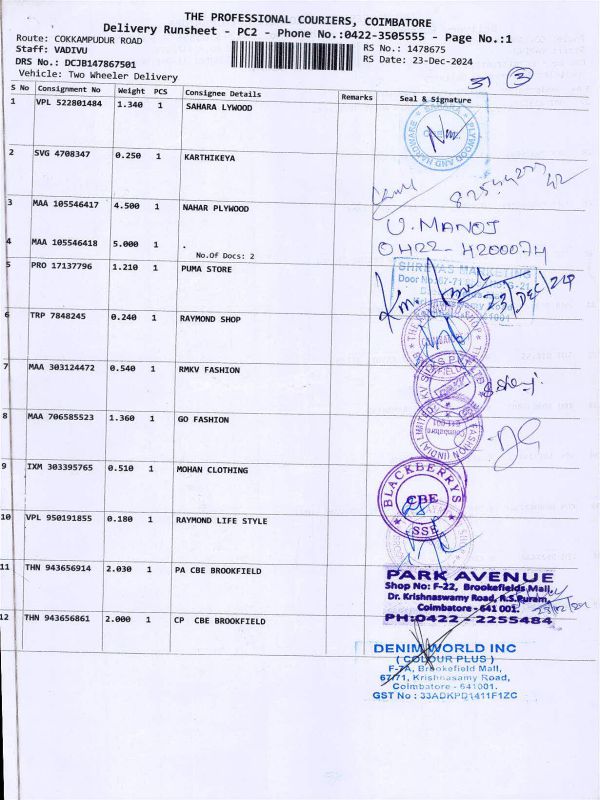 THE PROFESSIONAL COURIERS, COIMBATORE
Delivery Runsheet - PC2 - Phone No.:0422-3505555 - Page No.:1
Route: COKKAMPUDUR ROAD
RS No.: 1478675
Staff: VADIVU
RS Date: 23-Dec-2024
DRS No.: DCJB147867501
Vehicle: Two Wheeler Delivery
S No Consignment No Weight PCS Consignee Details Remarks Seal & Signature
1 VPL 522801484 1.340 1 SAHARA LYWOOD
PLYWOOD AND HARDWARE
2 SVG 4708347 0.250 1 KARTHIKEYA
3 MAA 105546417 4.500 1 NAHAR PLYWOOD
U. MANOJ
4 MAA 105546418 5.000 1 .
No.Of Docs: 2
0422-4200074
5 PRO 17137796 1.210 1 PUMA STORE
SHREYAS MARKETING
23/DEC/24
6 TRP 7848245 0.240 1 RAYMOND SHOP
THE RAYMOND SHOP
7 MAA 303124472 0.540 1 RMKV FASHION
8 MAA 706585523 1.360 1 GO FASHION
FASHION (INDIA) LIMITED
9 IXM 303395765 0.510 1 MOHAN CLOTHING
BLACKBERRYS
CBE
SSE
10 VPL 950191855 0.180 1 RAYMOND LIFE STYLE
11 THN 943656914 2.030 1 PA CBE BROOKFIELD
PARK AVENUE
Shop No: F-22, Brookefields Mall,
Dr. Krishnaswamy Road, R.S.Puram,
Coimbatore - 641 001.
PH:0422 - 2255484
12 THN 943656861 2.000 1 CP CBE BROOKFIELD
DENIM WORLD INC
( COLOUR PLUS )
F-7A, Brookefield Mall,
67/71, Krishnasamy Road,
Coimbatore - 641001.
GST No : 33ADKPD1411F1ZC